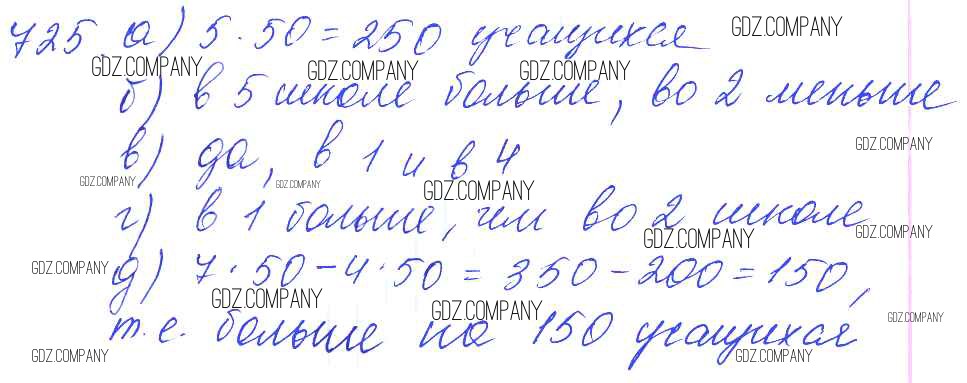 725 а) 5·50=250 учащихся GDZ.COMPANY
GDZ.COMPANY GDZ.COMPANY GDZ.COMPANY
б) в 5 школе больше, во 2 меньше
в) да, в 1 и в 4 GDZ.COMPANY
GDZ.COMPANY GDZ.COMPANY GDZ.COMPANY
г) в 1 больше, чем во 2 школе
GDZ.COMPANY GDZ.COMPANY
GDZ.COMPANY д) 7·50-4·50=350-200=150,
GDZ.COMPANY GDZ.COMPANY GDZ.COMPANY
т.е. больше на 150 учащихся
GDZ.COMPANY GDZ.COMPANY